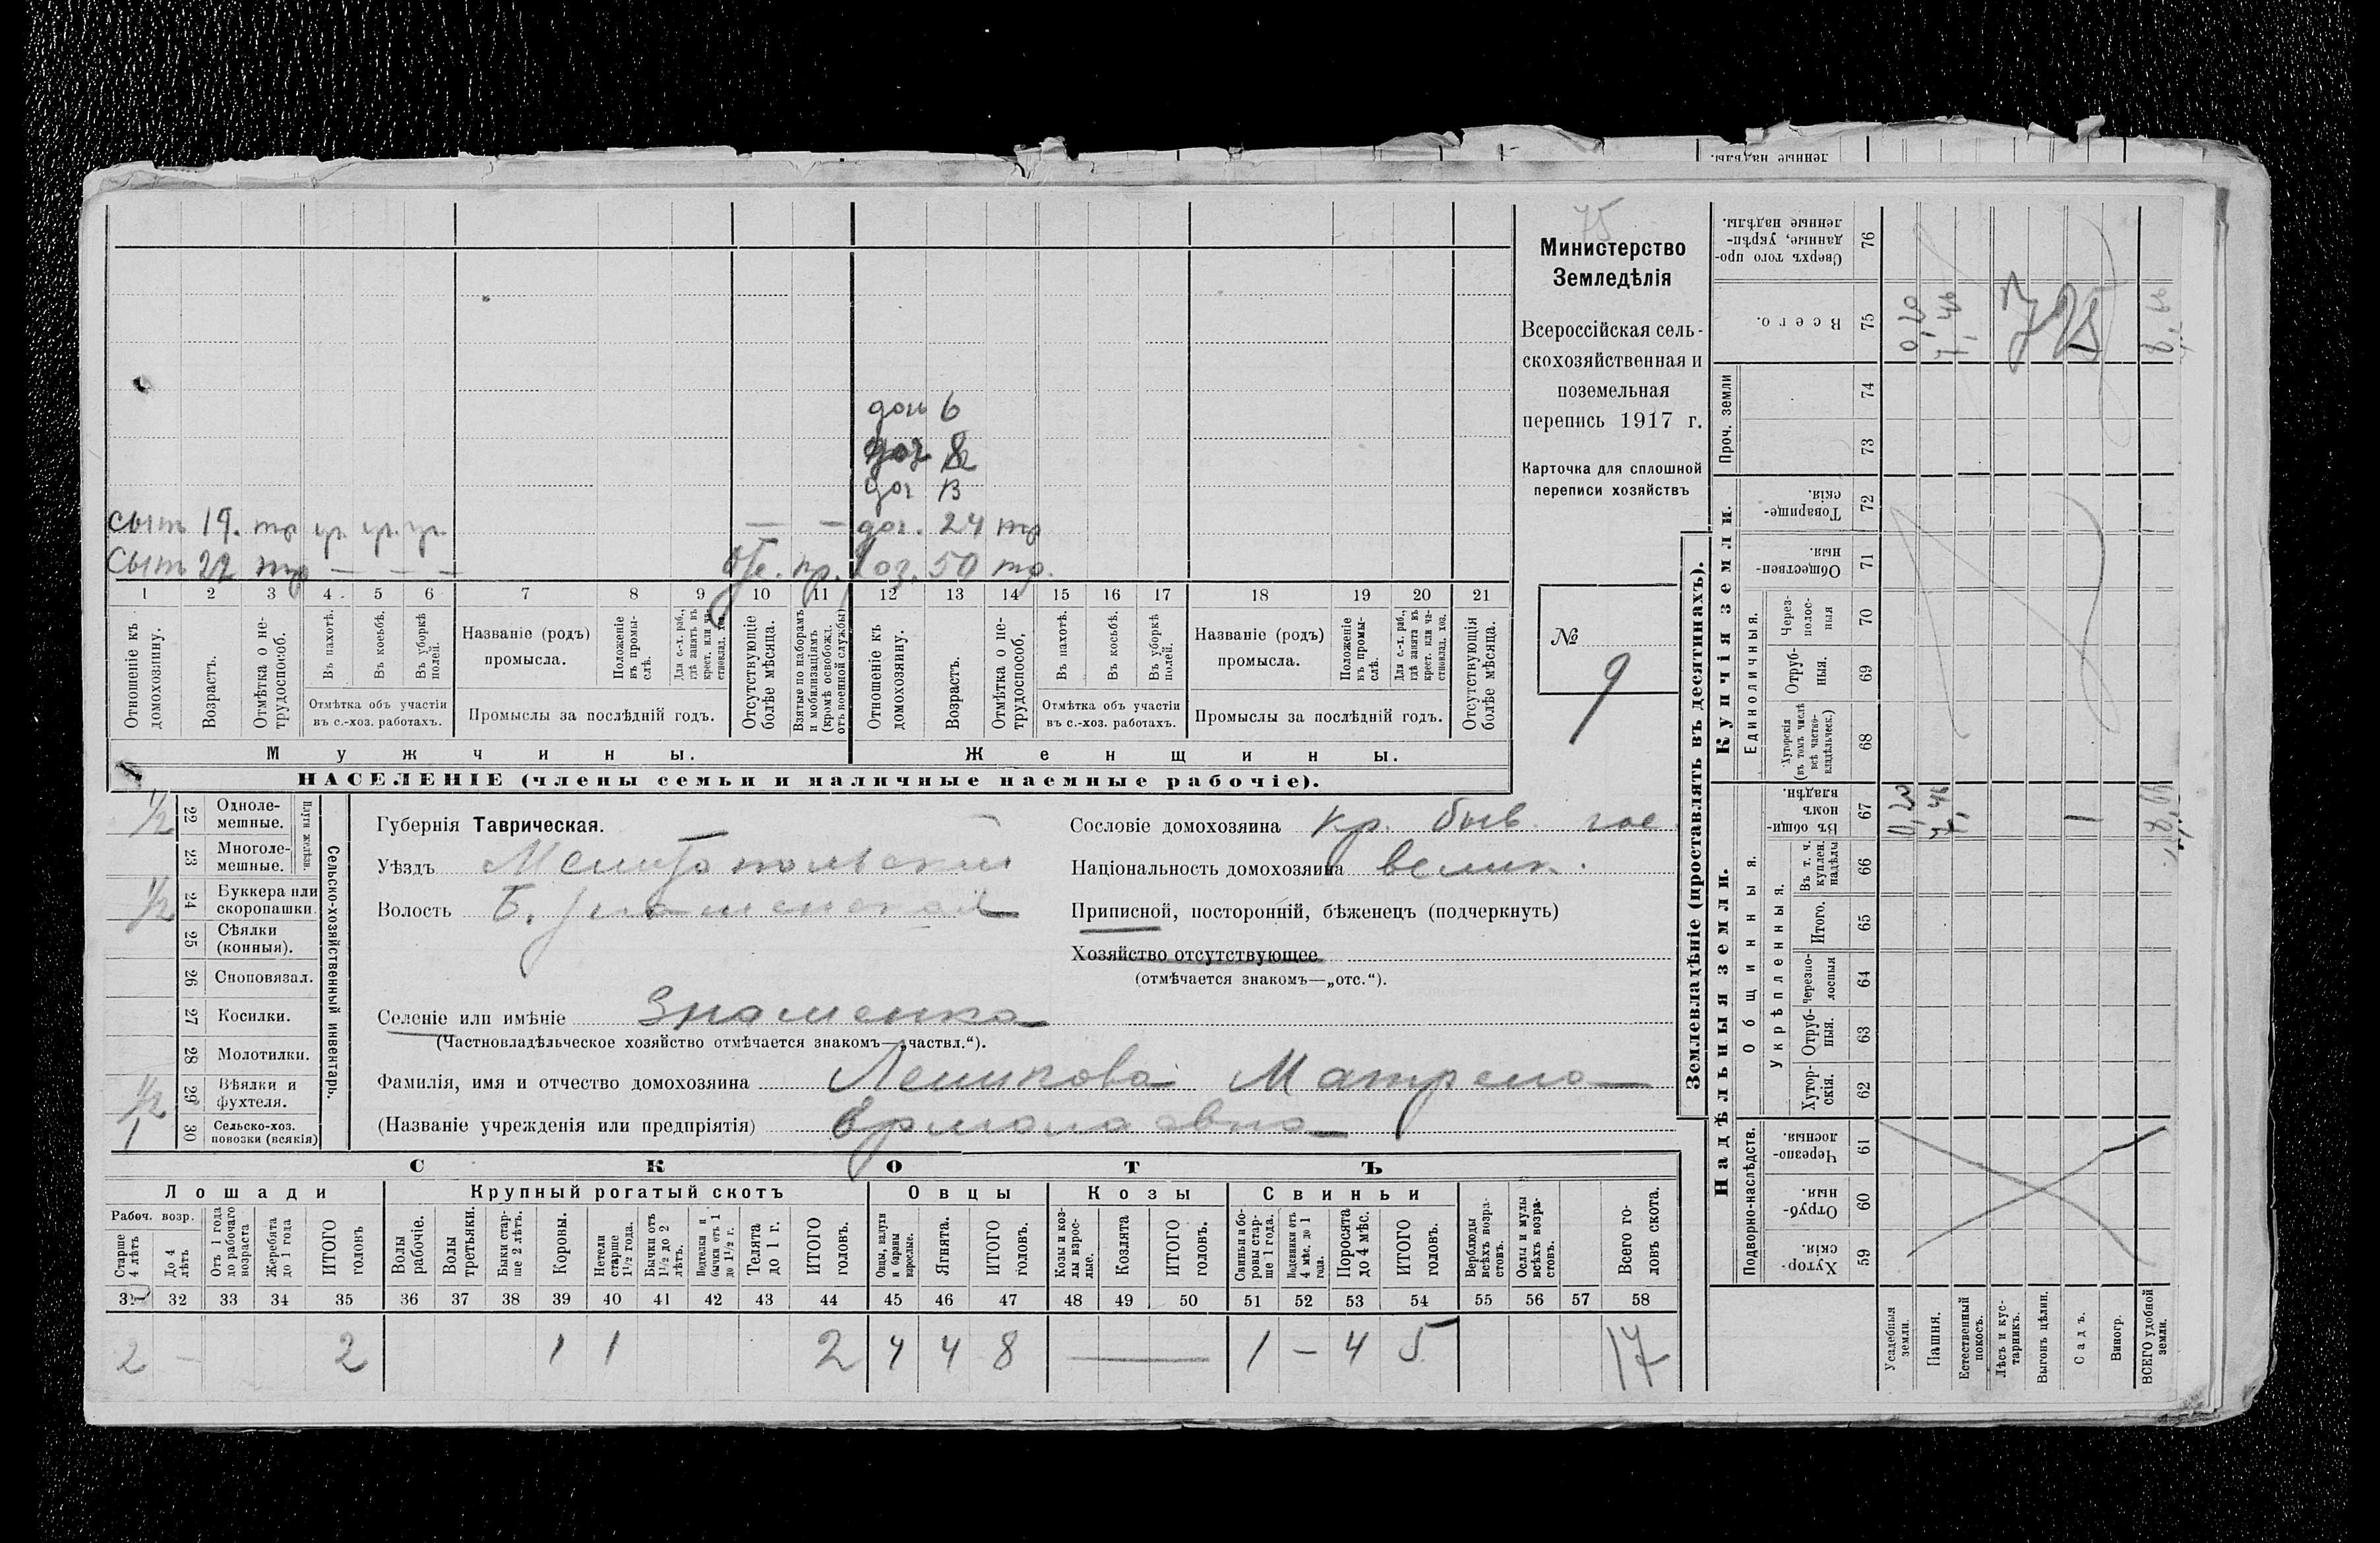 75
Министерство
Земледѣлія
Всероссійская сель-
скохозяйственная и
поземельная
перепись 1917 г.
Карточка для сплошной
переписи хозяйствъ
№
9
доч 6
доч
доч 13
сынъ 19. тр ур. ур. ур. — — доч. 24 тр
Сынъ 22 тр — — — пр. хоз. 50 тр.
1 2 3 4 5 6 7 8 9 10 11 12 13 14 15 16 17 18 19 20 21
Отношеніе къ домохозяину.
Возрастъ.
Отмѣтка о не-трудоспособ.
Въ пахотѣ.
Въ косьбѣ.
Въ уборкѣ полей.
Отмѣтка объ участіи
въ с.-хоз. работахъ.
Названіе (родъ)
промысла.
Положеніе въ промы-слѣ.
Для с.-х. раб., гдѣ занятъ въ крест. или ча-стновлад. хоз.
Промыслы за послѣдній годъ.
Отсутствующіе болѣе мѣсяца.
Взятые по наборамъ и мобилизаціямъ (кромѣ освобожд. отъ военной службы)
Отношеніе къ домохозяину.
Возрастъ.
Отмѣтка о не-трудоспособ.
Въ пахотѣ.
Въ косьбѣ.
Въ уборкѣ полей.
Отмѣтка объ участіи
въ с.-хоз. работахъ.
Названіе (родъ)
промысла.
Положеніе въ промы-слѣ.
Для с.-х. раб., гдѣ занята въ крест. или ча-стновлад. хоз.
Промыслы за послѣдній годъ.
Отсутствующія болѣе мѣсяца.
Мужчины.
Женщины.
НАСЕЛЕНІЕ (члены семьи и наличные наемные рабочіе).
1/2 22 Одноле-мешные.
23 Многоле-мешные.
Плуги желѣзн.
1/2 24 Буккера или скоропашки
25 Сѣялки (конныя).
26 Сноповязал.
27 Косилки.
28 Молотилки.
1/2 29 Вѣялки и фухтеля.
1 30 Сельско-хоз. повозки (всякія)
Сельско-хозяйственный инвентарь.
Губернія Таврическая.
Уѣздъ Мелитопольскій
Волость Б. Знаменская
Сословіе домохозяина кр. быв. гос.
Національность домохозяина велик.
Приписной, посторонній, бѣженецъ (подчеркнуть)
Хозяйство отсутствующее
(отмѣчается знакомъ—„отс.“).
Селеніе или имѣніе Знаменка
(Частновладѣльческое хозяйство отмѣчается знакомъ—„частвл.“).
Фамилія, имя и отчество домохозяина Матрена
(Названіе учрежденія или предпріятія)
СКОТЪ
Лошади
Крупный рогатый скотъ
Овцы
Козы
Свиньи
Рабоч. возр.
Старше 4 лѣтъ
До 4 лѣтъ
Отъ 1 года до рабочаго возраста
Жеребята до 1 года
ИТОГО головъ
Волы рабочіе.
Волы третьяки.
Быки стар-ше 2 лѣтъ.
Коровы.
Нетели старше 1½ года.
Бычки отъ 1½ до 2 лѣтъ.
Подтелки и бычки отъ 1 до 1½ г.
Телята до 1 г.
ИТОГО головъ.
Овцы, валухи и бараны взрослые.
Ягнята.
ИТОГО головъ.
Козы и коз-лы взрос-лые.
Козлята
ИТОГО головъ.
Свиньи и бо-ровы стар-ше 1 года.
Подсвинки отъ 4 мѣс. до 1 года.
Поросята до 4 мѣс.
ИТОГО головъ.
Верблюды всѣхъ возра-стовъ.
Ослы и мулы всѣхъ возра-стовъ.
Всего го-ловъ скота.
31 32 33 34 35 36 37 38 39 40 41 42 43 44 45 46 47 48 49 50 51 52 53 54 55 56 57 58
2 — 2 1 1 2 4 4 8 — 1 — 4 5 17
Землевладѣніе (проставлять въ десятинахъ).
Надѣльныя земли.
Купчія земли.
Проч. земли
Подворно-наслѣдств.
Общинныя.
Укрѣпленныя.
Единоличныя.
Сверхъ того про-данные, укрѣп-ленные надѣлы. 76
Всего. 75
74
73
Товарище-скія. 72
Обществен-ныя. 71
Через-полос-ныя 70
Отруб-ныя. 69
Хуторскія (въ томъ числѣ всѣ частно-владѣльческ.) 68
Въ общи-номъ владѣн. 67
Въ т. ч. куплен. надѣлы 66
Итого. 65
Черезпо-лосныя 64
Отруб-ныя. 63
Хутор-скія. 62
Черезпо-лосныя. 61
Отруб-ныя. 60
Хутор-скія. 59
Усадебныя земли.
Пашня.
Естественный покосъ.
Лѣсъ и кус-тарникъ.
Выгонъ цѣлин.
Садъ.
Виногр.
ВСЕГО удобной земли.
0,20
7,46
725
0,20
7,46
1
ленные надѣлы.